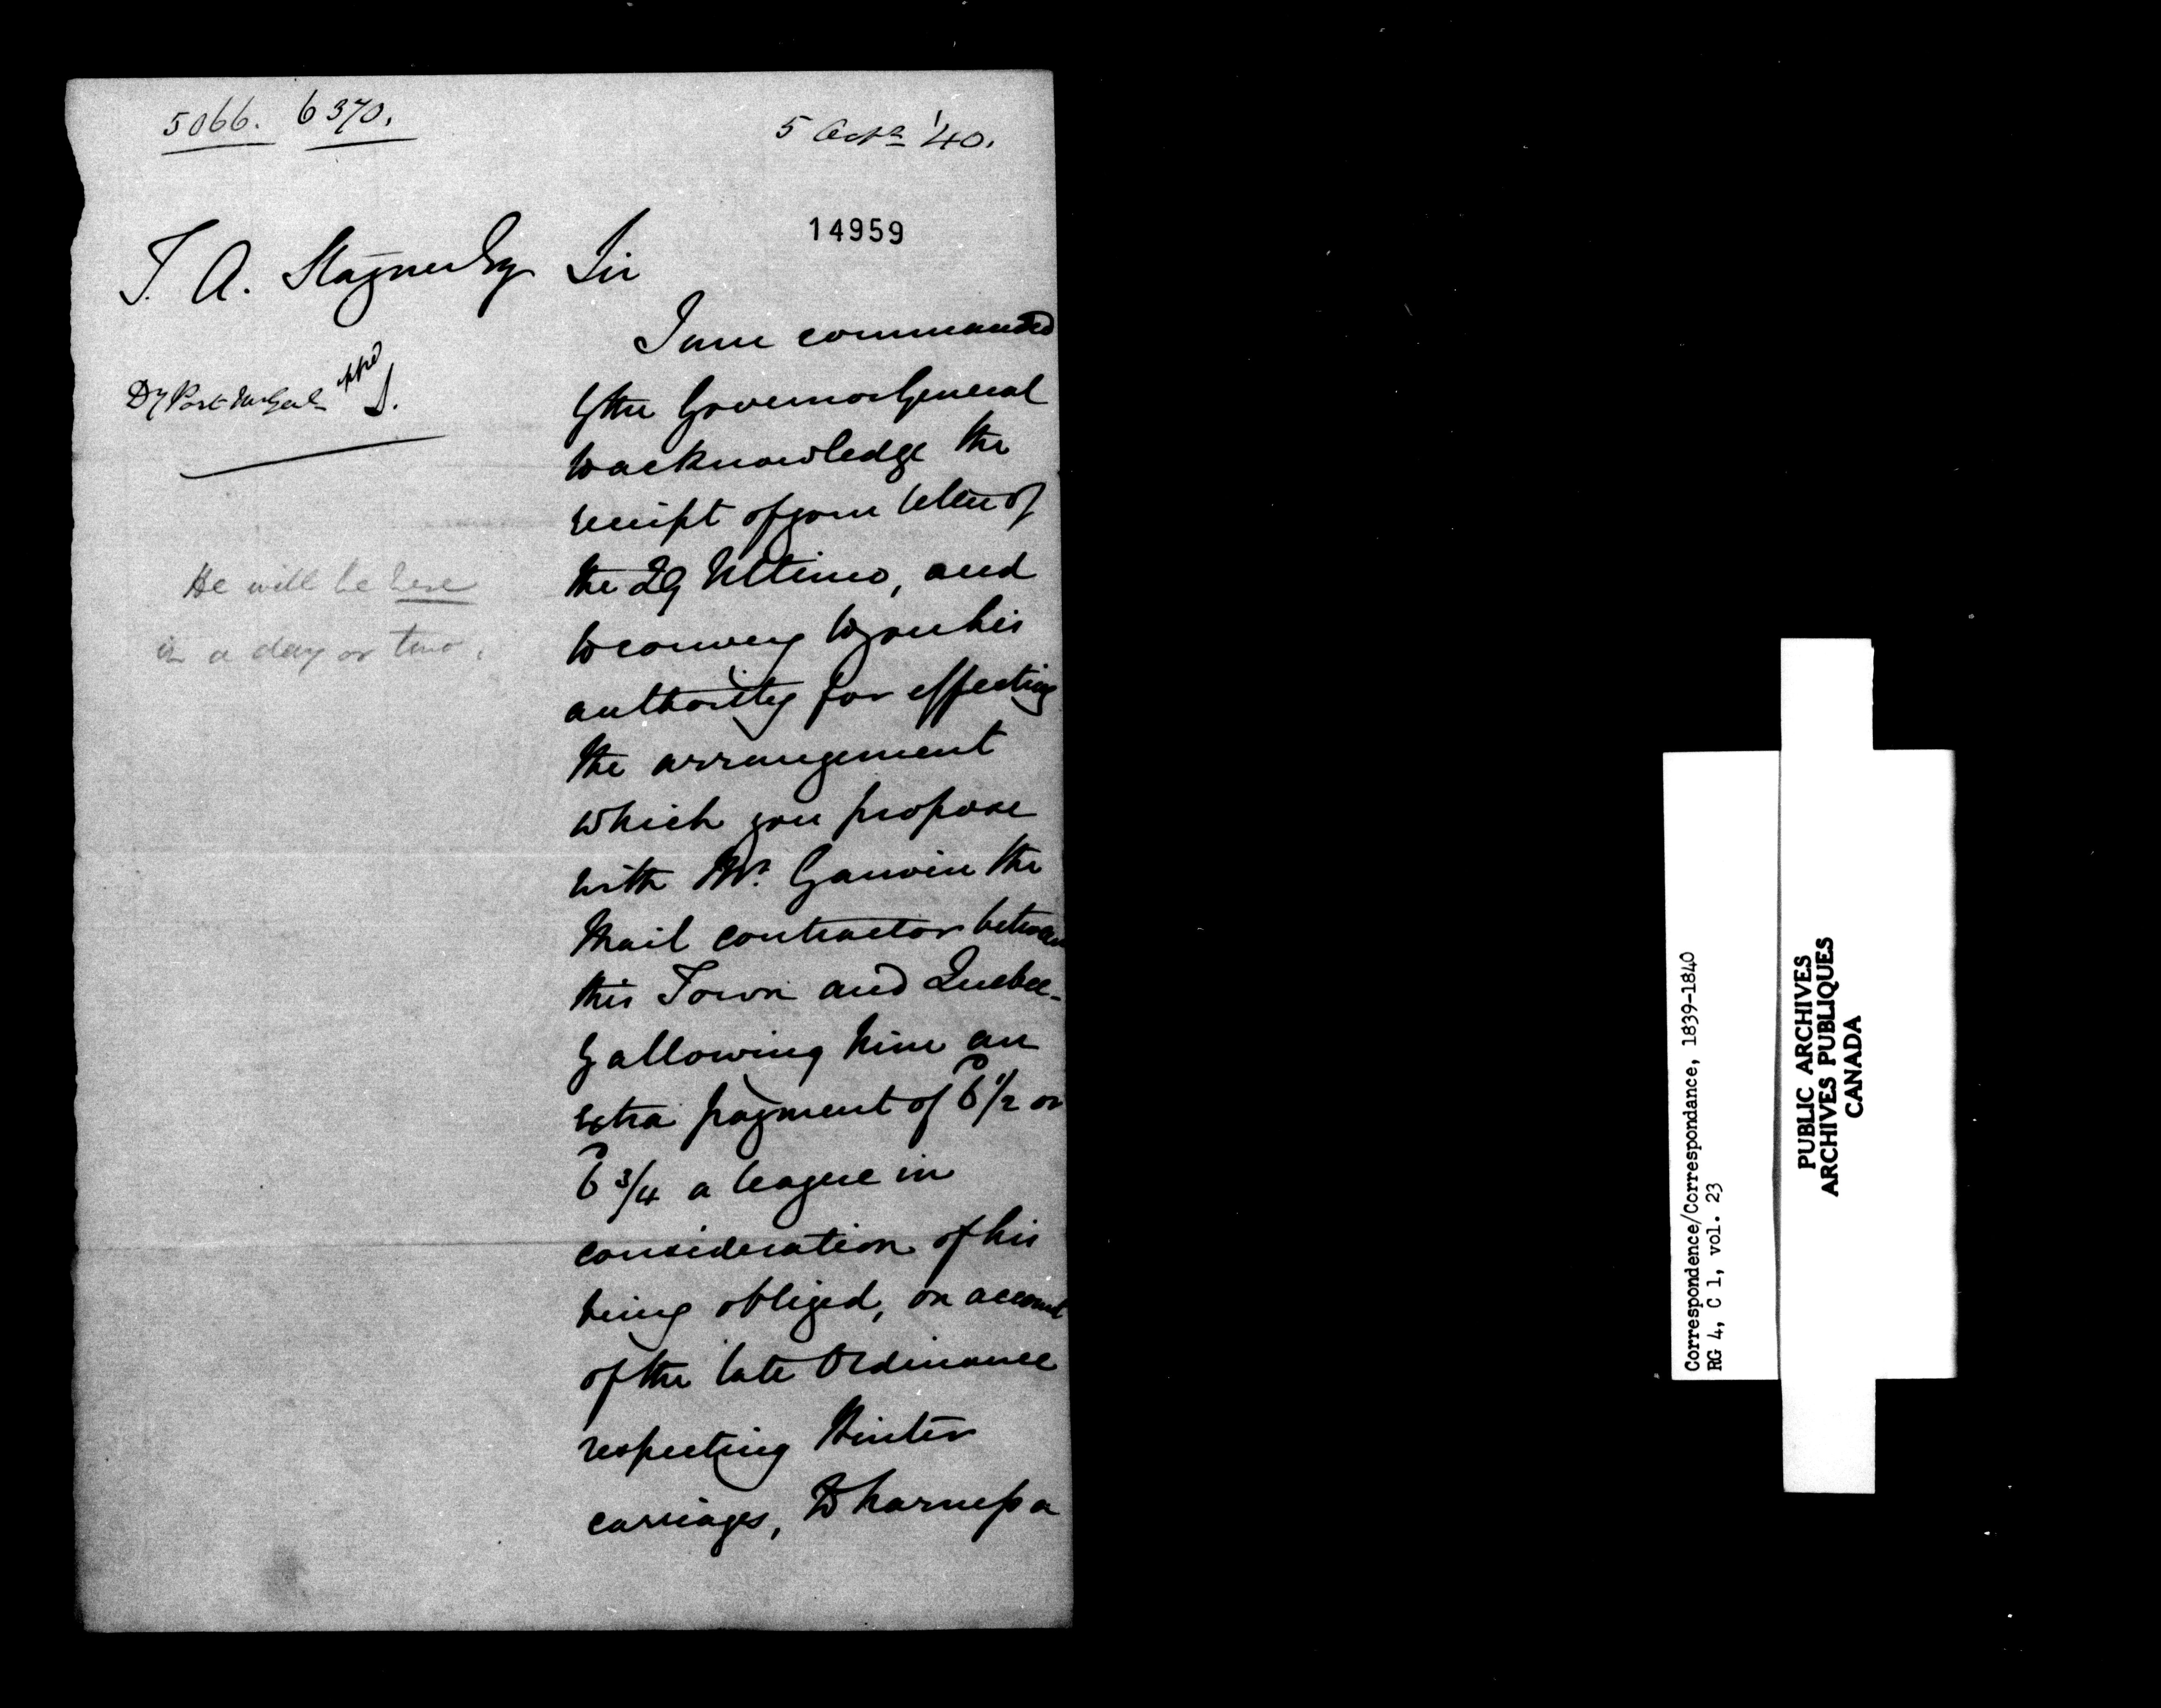 5066. 6370.
5 Octr '40.
14959
T. A. Stayner Esqr
Dy Post Mr Genl
He will be here
in a day or two.
Sir
I am commanded
by the Governor General
to acknowledge the
receipt of your letter of
the 29 Ultimo, and
to convey to you his
authority for effecting
the arrangement
which you propose
with Mr. Gauvin the
Mail contractor between
this Town and Quebec
by allowing him an
extra payment of 6 1/2 or
6 3/4 a league in
consideration of his
being obliged, on account
of the late Ordinance
respecting Winter
carriages, to harness a
Correspondence/Correspondance, 1839-1840
RG 4, C 1, vol. 23
PUBLIC ARCHIVES
ARCHIVES PUBLIQUES
CANADA